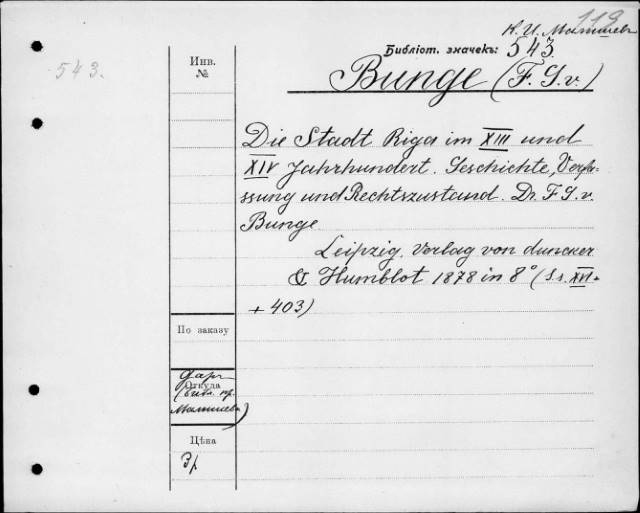 119
К. И. Малышев
543.
Библіот. значекъ: 543.
Bunge (F. G. v.)
Инв.
№
Die Stadt Riga im XIII und
XIV Jahrhundert. Geschichte, Verfa-
ssung und Rechtszustand. Dr. F. G. v.
Bunge
Leipzig. Verlag von duncker
& Humblot 1878 in 8° (S.s. XVI +
+ 403)
По заказу
Откуда
даръ
(библ. пр.
Малышева)
Цѣна
3р